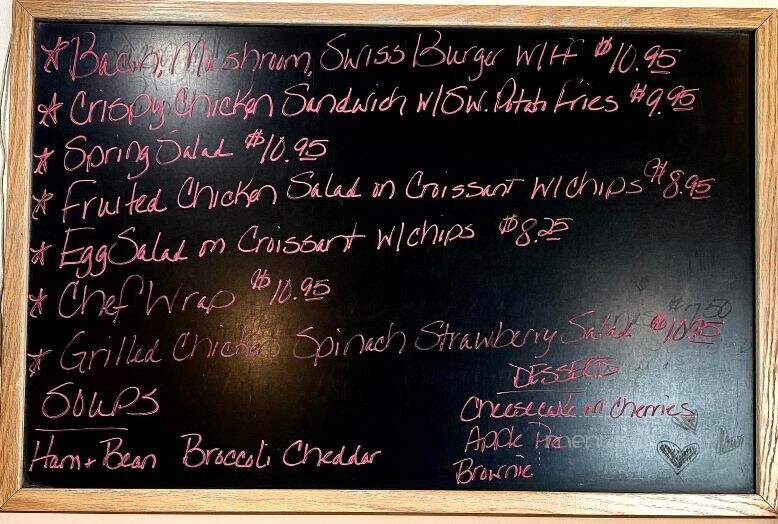 * Bacon, Mushroom, Swiss Burger W/ff $10.95
* Crispy Chicken Sandwich w/SW. Potato Fries $9.95
* Spring Salad $10.95
* Fruited Chicken Salad on Croissant w/chips $8.95
* Egg Salad on Croissant w/chips $8.25
* Chef Wrap $10.95
* Grilled Chicken Spinach Strawberry Salad $10.95
Soups
Ham + Bean Broccoli Cheddar
Dessets
Cheesecake Cherries
Apple Pie
Brownie